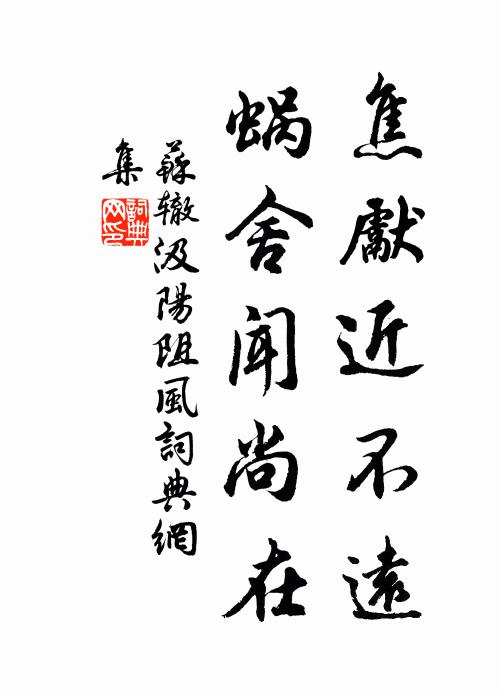 焦獻近不遠
蝸舍聞尚在
蘇辙汲陽阻風詞典網
集
詞典
网印